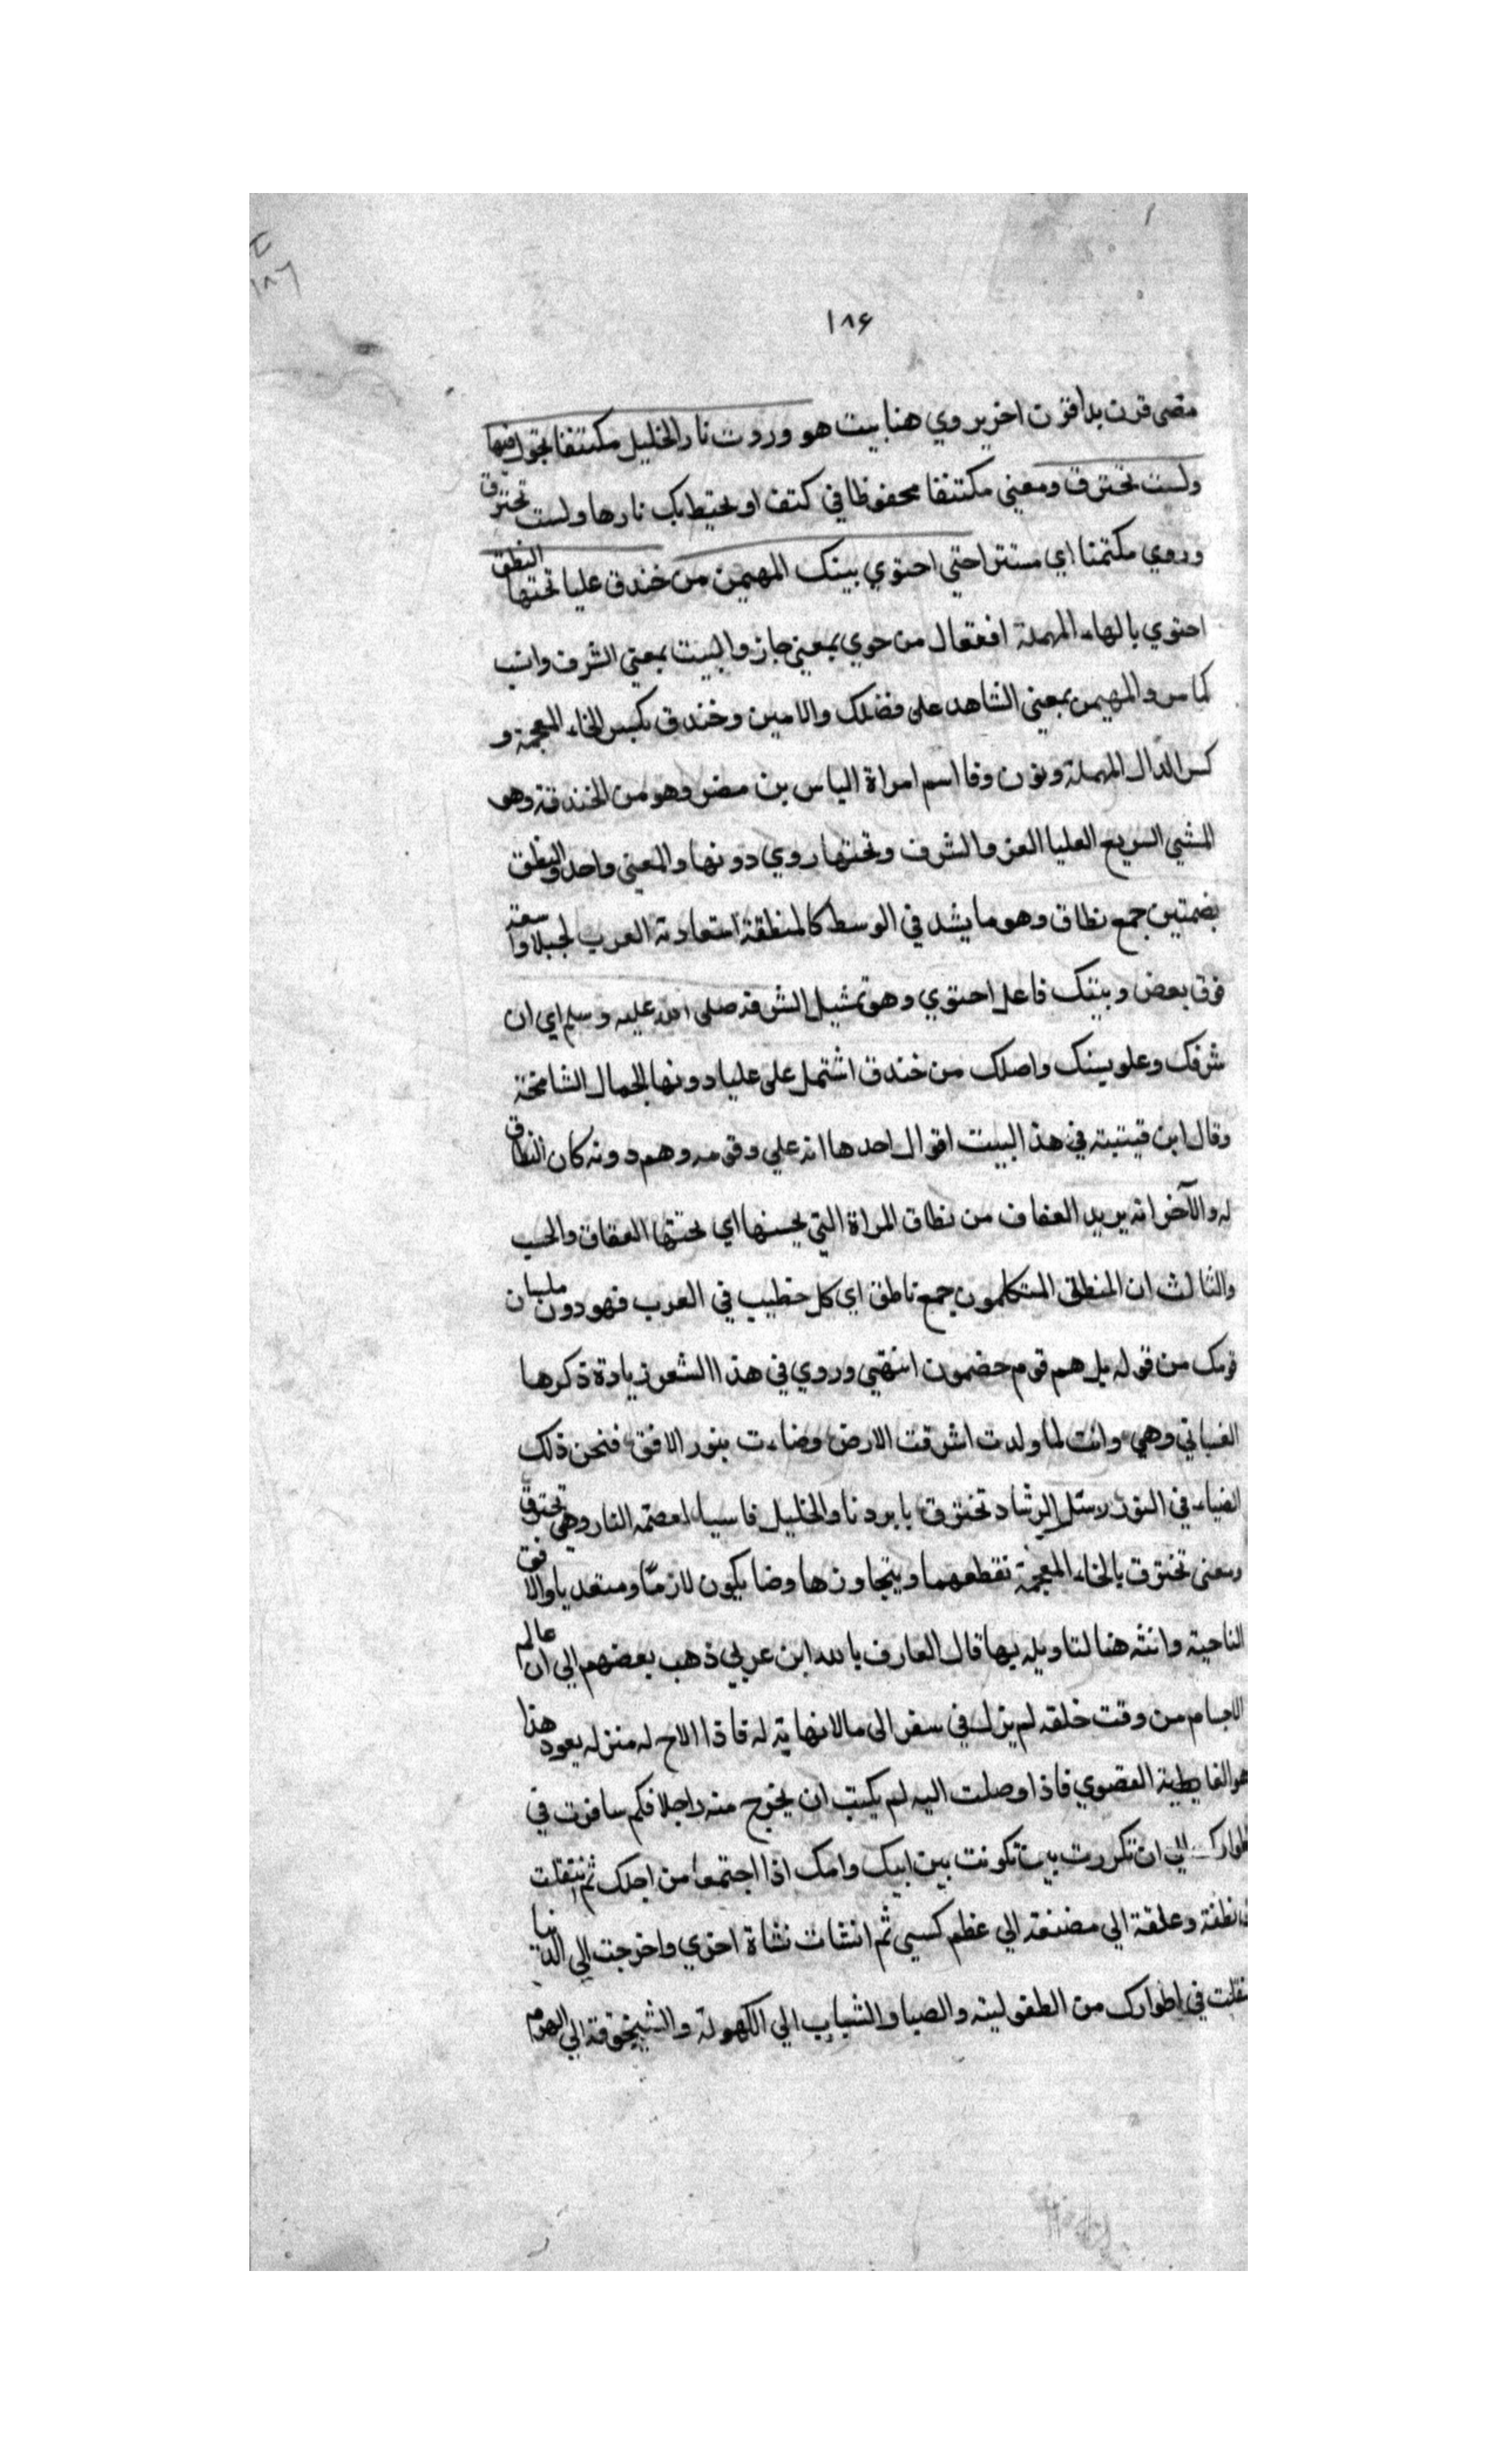 ١٨٦
١٨٤
مضى قرن بدا قرن اخر يروي هنا بيت هو وروت نار الخليل مكتتفا تجول فيها
ولست تحترق ومعنى مكتنفا محفوظا في كنف او يحتيط بك نارها ولست تحترق
وروي مكتمنا اي مستترا حتي احتوي بيتك المهيمن من خندق عليا تحتها النطق
احتوي بالهاء المهملة افتعال من حوي بمعنى حاز والبيت بمعنى الشرف وانب
كما مر والمهيمن بمعنى الشاهد على فضلك والامين وخندق بكسر الخاء المعجمة و
كسر الدال المهملة ونون وفا اسم امراة الياس بن مضر وهو من الخندقة وهو
المشي السريع العليا العز والشرف وتحتها روي دونها والمعنى واحد والنطق
بضمتين جمع نطاق وهو ما يشد في الوسط كالمنطقة استعارته العرب لجبلا واسعة
فوق بعض وبيتك فاعل احتوي وهو تمثيل الشرفه صلى الله عليه وسلم اي ان
شرفك وعلو بيتك واصلك من خندق اشتمل على عليا دونها الجمال الشامخة
وقال ابن قيتبته في هذ البيت اقوال احدها انه علي وقومه وهم دونه كان النطاق
له والآخر انه يريد العفاف من نطاق المراة التي يحسنها اي تحتها العفاف والحب
والثالث ان المنطق المتكلمون جمع ناطق اي كل خطيب في العرب فهو دون
قومك من قوله بل هم قوم خضمون انتهي وروي في هذا الشعر زيادة ذكرها
الغساني وهي وانت لما ولدت اشرقت الارض وضاءت بنور الافق فنحن ذلك
الضياء في النور رسبل الرشاد تخترق يا بردنا والخليل فاسياء لعصمه النار وهي تحترق
ومعنى تخترق بالخاء المعجمة نقطعهما ويتجاوزها وضا يكون لازما ومتعديا والافق
الناحية وانثه هنا لتاويله بها قال العارف بالله ابن عربي ذهب بعضهم الي ان عالم
الاجسام من وقت خلقه لم يزل في سفر الى مالانهاية له فاذا الاح له منزله يعود هذا
هو الغايطية القصوي فاذا وصلت اليه لم يكتب ان يخرج منه راجلا فكم سافرت في
اطوارك الي ان تكررت بان تكونت بين ابيك وامك اذا اجتمعا من اجلك ثم انتقلت
نطفة وعلقة الي مضغة الي عظم كسي ثم انشات نشاة اخري واخرجت الي الدنيا
نقلت في اطوارك من الطفوليته والصبا والشباب الي الكهولة والشيخوقة الي الهرم